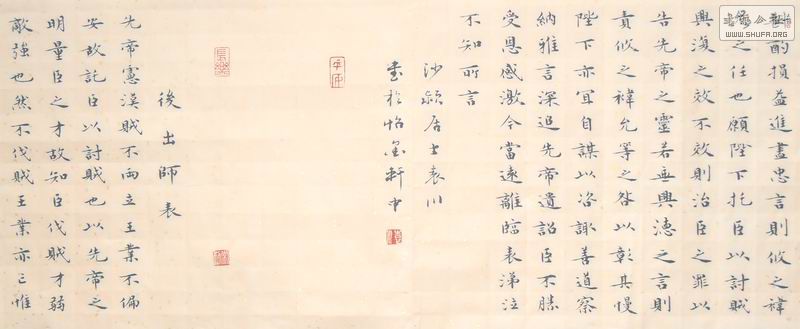 WWW.SHUFA.ORG
酌損益進盡忠言則攸之褘
之任也願陛下托臣以討賊
興復之效不效則治臣之罪以
告先帝之靈若無興德之言則
責攸之褘允等之咎以彰其慢
陛下亦宜自謀以咨諏善道察
納雅言深追先帝遺詔臣不勝
受恩感激今當遠離臨表涕泣
不知所言
沙潁居士袁川
書於怡墨軒中
長樂
後出師表
先帝慮漢賊不兩立王業不偏
安故託臣以討賊也以先帝之
明量臣之才故知臣伐賊才弱
敵強也然不伐賊王業亦亡惟